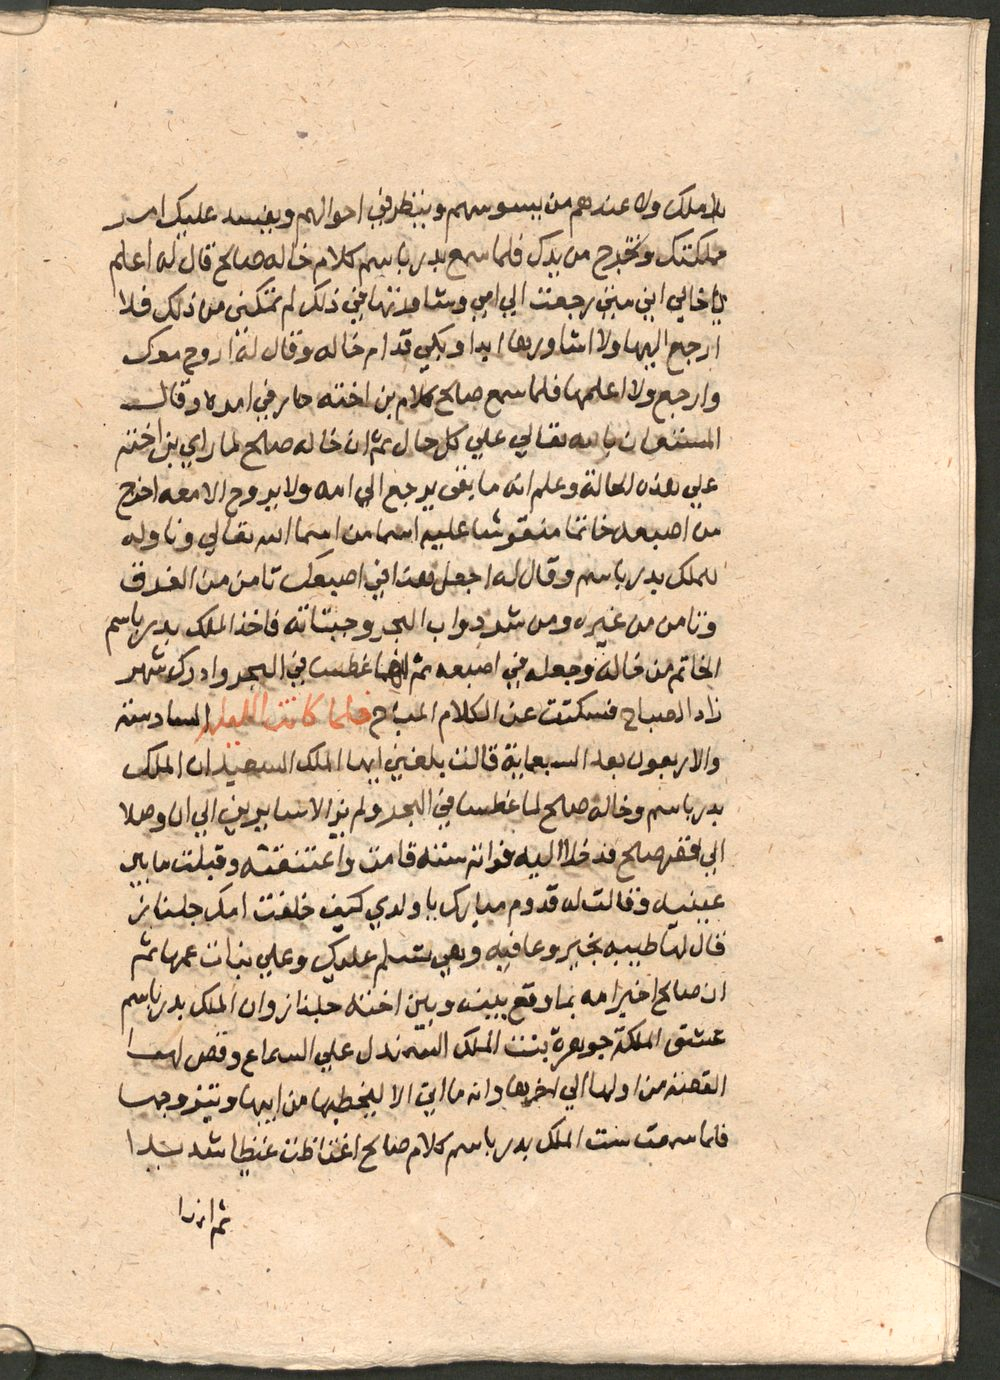 بلا ملك ولا عندهم من يسوسهم وينظر في احوالهم ويفسد عليك امر
مملكتك وتخرج من يدك فلما سمع بدر باسم كلام خاله صالح قال له اعلم
يا خالي انني متي رجعت الي امي وشاورتها في ذلك لم تمكني من ذلك فلا
ارجع اليها ولا اشاورها ابدا وبكي قدام خاله وقال له اروح معك
وارجع ولا اعلمها فلما سمع صالح كلام بن اخته حار في امره وقال
المستعان بالله تعالي علي كل حال ثم ان خاله صالح لما راي بن اخته
علي هذه الحالة وعلم انه ما بقي يرجع الي امه ولا يروح الا معه اخرج
من اصبعه خاتما منقوشا عليه اسما من اسما الله تعالي وناوله
للملك بدر باسم وقال له اجعل هذا في اصبعك تامن من الغرق
وتامن من غيره ومن شر دواب البحر وحيتانه فاخذ الملك بدر باسم
الخاتم من خاله وجعله في اصبعه ثم انهما غطسا في البحر وادرك شهر
زاد الصباح فسكتت عن الكلام المباح فلما كانت الليلة السادسة
والاربعون بعد السبعماية قالت بلغني ايها الملك السعيد ان الملك
بدر باسم وخاله صالح لما غطسا في البحر ولم يزالا سايرين الي ان وصلا
الي قصر صالح فدخلا اليه فراته سته قامت واعتنقته وقبلت ما بين
عينيه وقالت له قدوم مبارك يا ولدي كيف خلفت امك جلناز
قال لها طيبه بخير وعافيه وهي تسلم عليك وعلي بنات عمها ثم
ان صالح اخبر امه بما وقع بينه وبين اخته جلناز وان الملك بدر باسم
عشق الملكة جوهرة بنت الملك السمندل علي السماع وقص لهما
القصة من اولها الي اخرها وانه ما اتي الا ليخطبها من ابيها ويتزوجها
فلما سمعت ست الملك بدر باسم كلام صالح اغتاظت غيظا شديدا